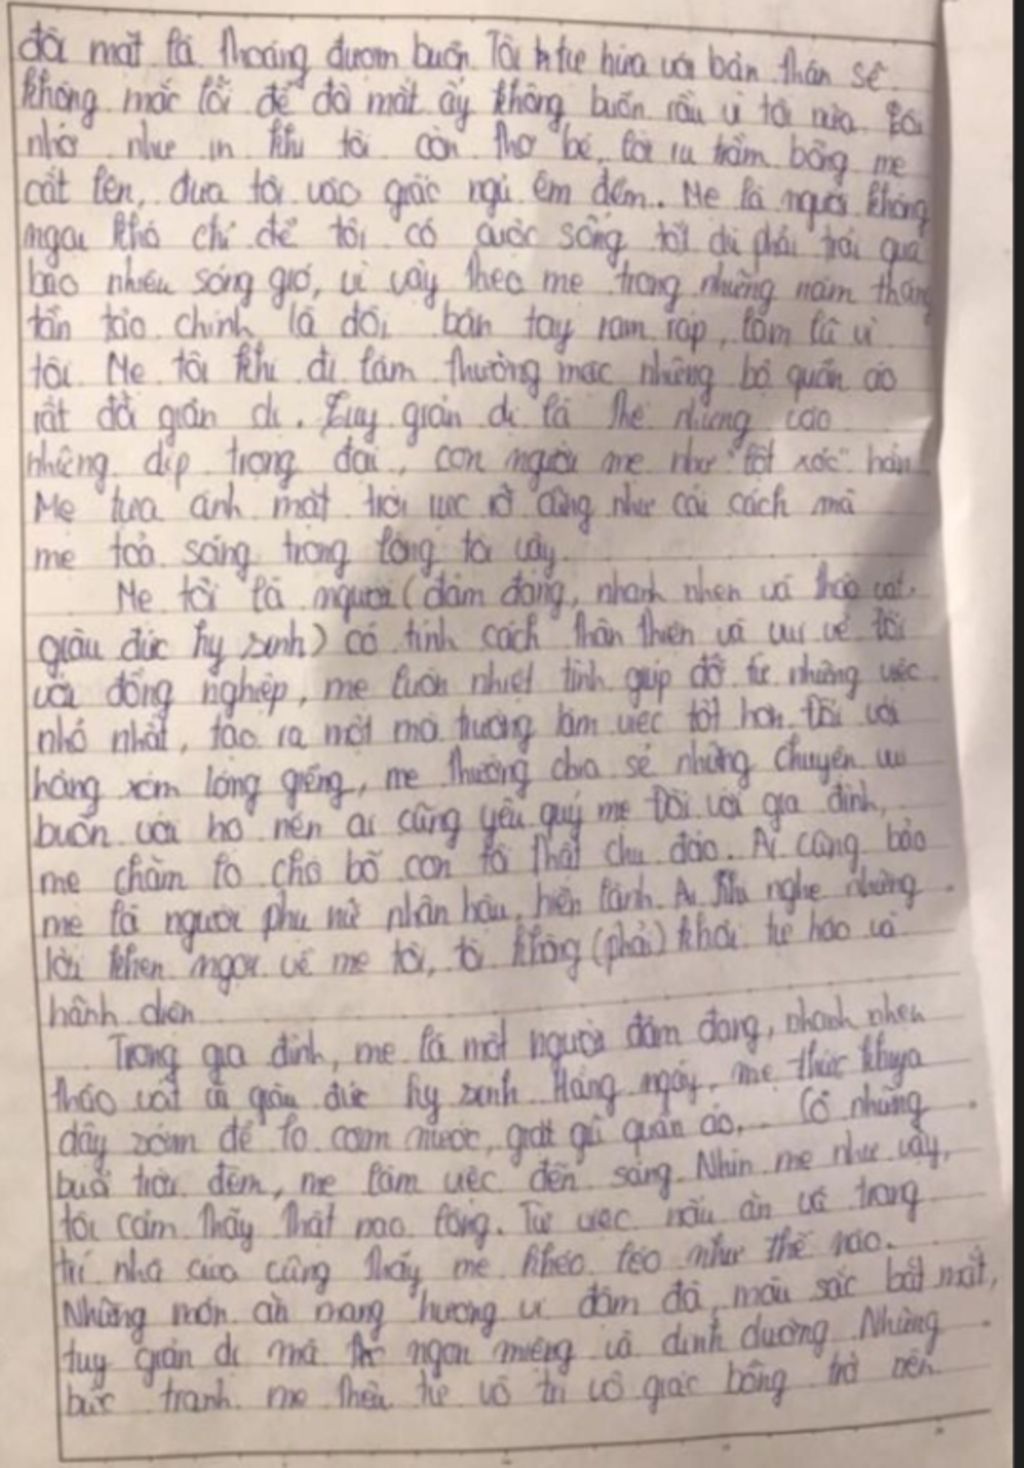 đôi mắt lá thoáng đượm buồn Tôi tự hứa với bản thân sẽ
không mắc lỗi để đôi mắt ấy không buồn rầu vì tôi nữa. Tôi
nhớ như in khi tôi còn thơ bé, lời ru trầm bổng mẹ
cất lên, đưa tôi vào giấc ngủ êm đềm. Mẹ là người không
ngại khó chỉ để tôi có cuộc sống tốt dù phải trải qua
bao nhiêu sóng gió, vì vậy theo mẹ trong những năm tháng
tần tảo chính là đôi bàn tay ram ráp, lam lũ vì
tôi. Mẹ tôi khi đi làm thường mặc những bộ quần áo
rất đỗi giản dị. Tuy giản dị là thế nhưng vào
những dịp trọng đại, con người mẹ như "lột xác" hẳn
Mẹ tựa ánh mặt trời rực rỡ cũng như cái cách mà
mẹ toả sáng trong lòng tôi vậy.
Mẹ tôi là người (đảm đang, nhanh nhẹn và tháo vát,
giàu đức hy sinh) có tính cách thân thiện và vui vẻ. Đối
với đồng nghiệp, mẹ luôn nhiệt tình giúp đỡ từ những việc
nhỏ nhất, tạo ra một môi trường làm việc tốt hơn. Đối với
hàng xóm láng giềng, mẹ thường chia sẻ những chuyện vui
buồn với họ nên ai cũng yêu quý mẹ. Đối với gia đình,
mẹ chăm lo cho bố con tôi thật chu đáo. Ai cũng bảo
mẹ là người phụ nữ nhân hậu, hiền lành. Khi nghe những
lời khen ngợi về mẹ tôi, tôi không (phải) khỏi tự hào và
hãnh diện
Trong gia đình, mẹ là một người đảm đang, nhanh nhẹn
tháo vát và giàu đức hy sinh. Hàng ngày, mẹ thức khuya
dậy sớm để lo cơm nước, giặt giũ quần áo,... Có những
buổi trời đêm, mẹ làm việc đến sáng. Nhìn mẹ như vậy,
tôi cảm thấy thật nao lòng. Từ việc nấu ăn và trang
trí nhà cửa cũng thấy mẹ khéo léo như thế nào.
Những món ăn mang hương vị đậm đà, màu sắc bắt mắt,
tuy giản dị mà ngon miệng và dinh dưỡng. Những
bức tranh mẹ thêu từ vô tri vô giác bỗng trở nên